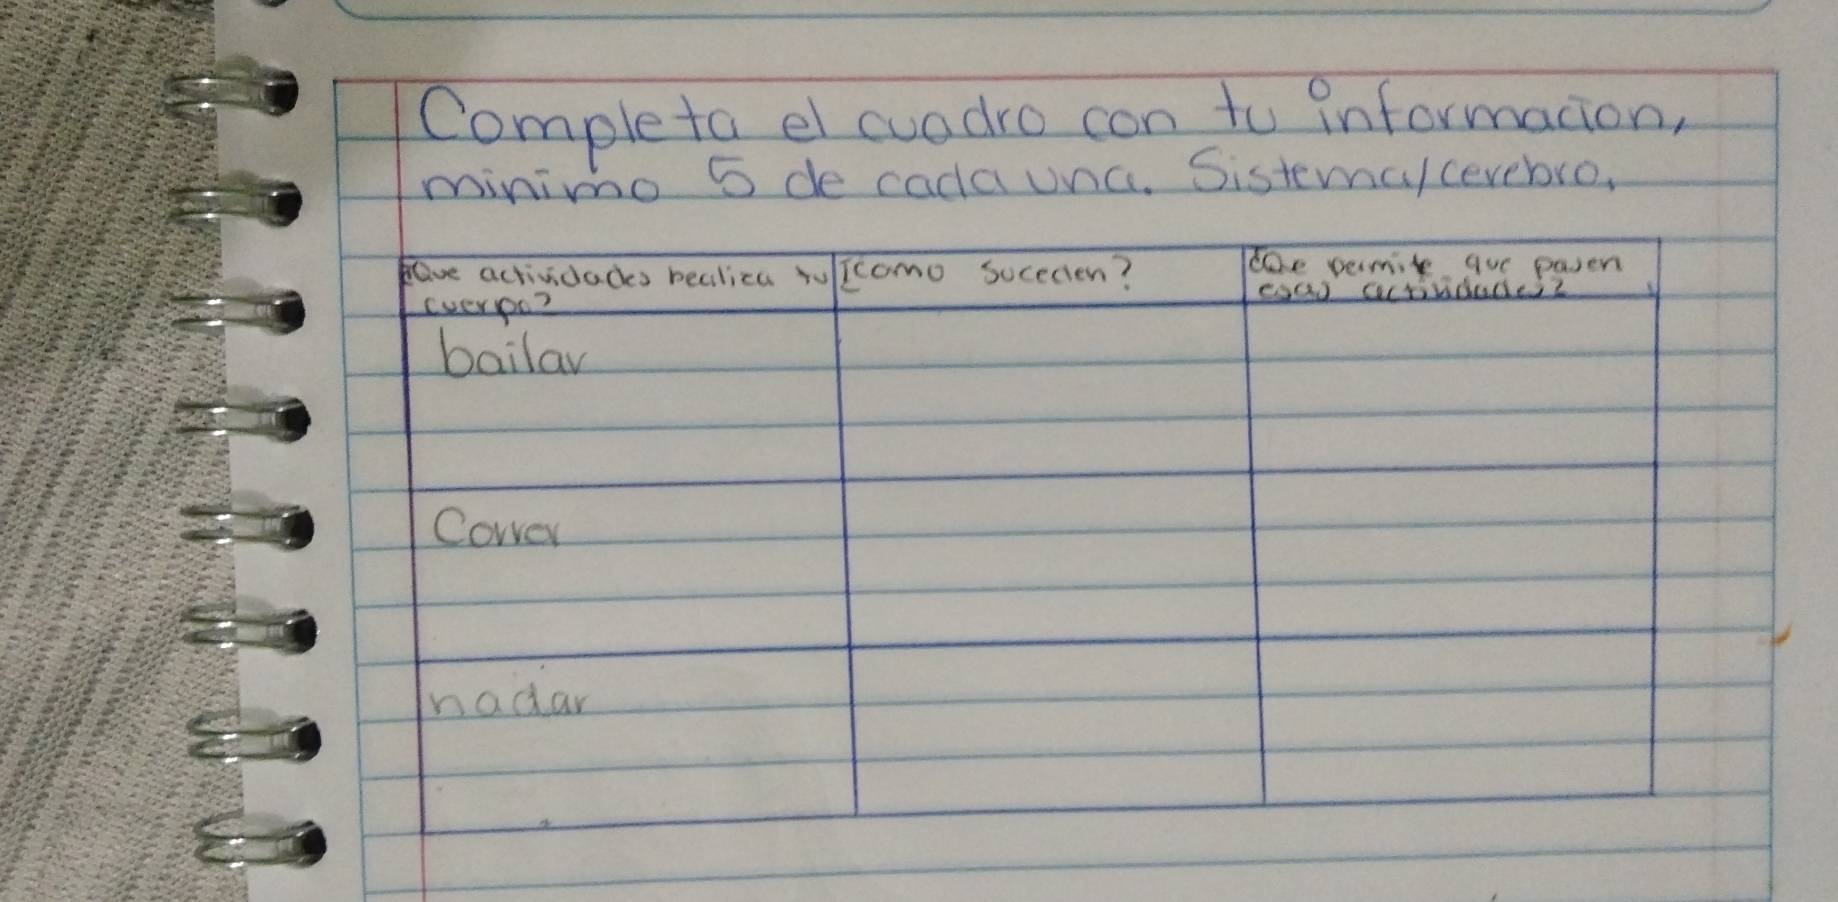 Completa el cuadro con tu informacion,
minimo 5 de cada una. Sistema/cerebro.
¿Que actividades realiza tu cuerpo?
¿Como suceden?
¿Que permite que pasen esas actividades?
bailar
Correr
nadar